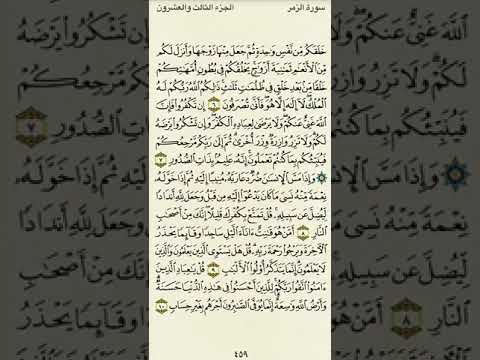 سورة الزمر الجزء الثالث والعشرون
خَلَقَكُم مِّن نَّفْسٍ وَٰحِدَةٍ ثُمَّ جَعَلَ مِنْهَا زَوْجَهَا وَأَنزَلَ لَكُم
مِّنَ ٱلْأَنْعَٰمِ ثَمَٰنِيَةَ أَزْوَٰجٍ يَخْلُقُكُمْ فِى بُطُونِ أُمَّهَٰتِكُمْ
خَلْقًا مِّنۢ بَعْدِ خَلْقٍ فِى ظُلُمَٰتٍ ثَلَٰثٍ ذَٰلِكُمُ ٱللَّهُ رَبُّكُمْ لَهُ
ٱلْمُلْكُ لَآ إِلَٰهَ إِلَّا هُوَ فَأَنَّىٰ تُصْرَفُونَ ٦ إِن تَكْفُرُوا۟ فَإِنَّ
ٱللَّهَ غَنِىٌّ عَنكُمْ وَلَا يَرْضَىٰ لِعِبَادِهِ ٱلْكُفْرَ وَإِن تَشْكُرُوا۟ يَرْضَهُ
لَكُمْ وَلَا تَزِرُ وَازِرَةٌ وِزْرَ أُخْرَىٰ ثُمَّ إِلَىٰ رَبِّكُم مَّرْجِعُكُمْ
فَيُنَبِّئُكُم بِمَا كُنتُمْ تَعْمَلُونَ إِنَّهُۥ عَلِيمٌۢ بِذَاتِ ٱلصُّدُورِ ٧
۞ وَإِذَا مَسَّ ٱلْإِنسَٰنَ ضُرٌّ دَعَا رَبَّهُۥ مُنِيبًا إِلَيْهِ ثُمَّ إِذَا خَوَّلَهُۥ
نِعْمَةً مِّنْهُ نَسِىَ مَا كَانَ يَدْعُوٓا۟ إِلَيْهِ مِن قَبْلُ وَجَعَلَ لِلَّهِ أَندَادًا
لِّيُضِلَّ عَن سَبِيلِهِۦ قُلْ تَمَتَّعْ بِكُفْرِكَ قَلِيلًا إِنَّكَ مِنْ أَصْحَٰبِ
ٱلنَّارِ ٨ أَمَّنْ هُوَ قَٰنِتٌ ءَانَآءَ ٱلَّيْلِ سَاجِدًا وَقَآئِمًا يَحْذَرُ
ٱلْأَخِرَةَ وَيَرْجُوا۟ رَحْمَةَ رَبِّهِۦ قُلْ هَلْ يَسْتَوِى ٱلَّذِينَ يَعْلَمُونَ وَٱلَّذِينَ
لَا يَعْلَمُونَ إِنَّمَا يَتَذَكَّرُ أُو۟لُوا۟ ٱلْأَلْبَٰبِ ٩ قُلْ يَٰعِبَادِ ٱلَّذِينَ
ءَامَنُوا۟ ٱتَّقُوا۟ رَبَّكُمْ لِلَّذِينَ أَحْسَنُوا۟ فِى هَٰذِهِ ٱلدُّنْيَا حَسَنَةٌ
وَأَرْضُ ٱللَّهِ وَٰسِعَةٌ إِنَّمَا يُوَفَّى ٱلصَّٰبِرُونَ أَجْرَهُم بِغَيْرِ حِسَابٍ ١٠
٤٥٩